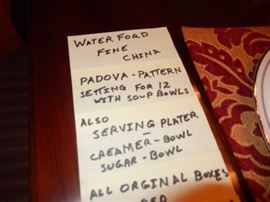 WATER FORD
FINE
CHINA
PADOVA - PATTERN
SETTING FOR 12
WITH SOUP BOWLS
ALSO
SERVING PLATER
-
CREAMER - BOWL
SUGAR - BOWL
ALL ORGINAL BOXES